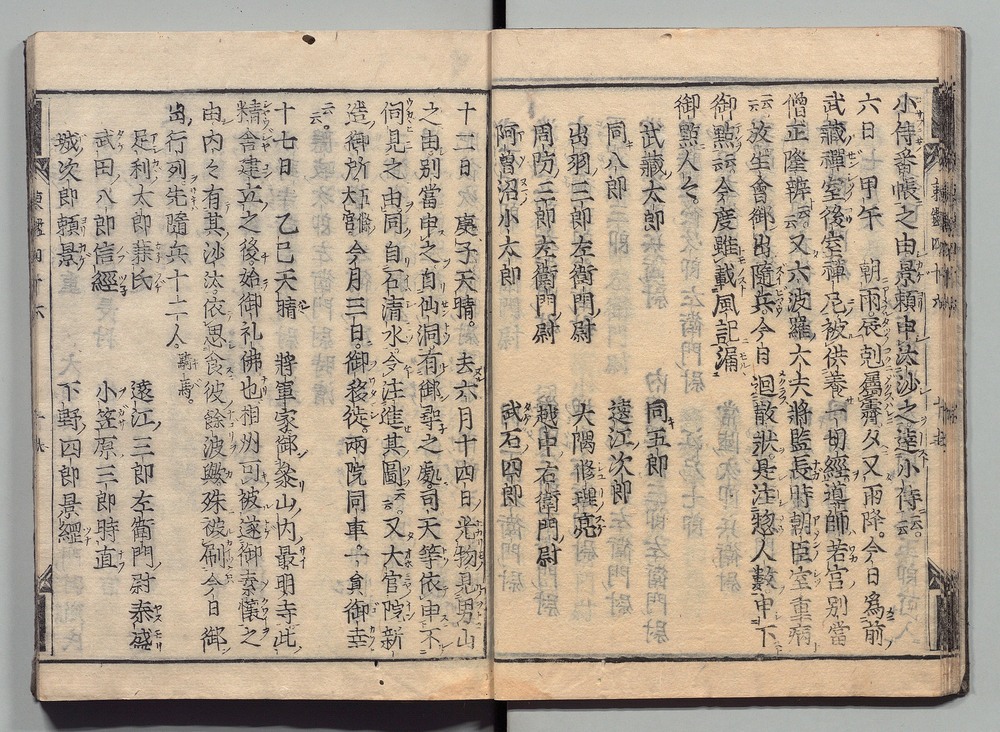 小侍番帳之由景頼申沙汰之達小侍云云
六日 甲午 朝雨辰剋属霽夕又雨降今日爲前
武藏禪室後室禪尼被供養一切經導師若宮別當
僧正隆辨云云又六波羅大夫將監長時朝臣室重病
云云放生會御出隨兵今日廻散状具注惣人數申下
御點云云今度雖載風記漏
御點人々
武藏太郎 同五郎
同八郎 遠江次郎
出羽三郎左衛門尉 大隅修理亮
周防三郎左衛門尉 越中右衛門尉
阿曽沼小太郎 武石四郎
十二日 庚子天晴去六月十四日光物見男山
之由別當申之自仙洞有御尋之處司天等依申不
伺見之由同自石清水今注進其圖云云又大宮院新
造御所五條大宮今月三日御移徙兩院同車于貟御幸
云云
十七日 乙巳天晴 將軍家御參山内最明寺此
精舎建立之後始御礼佛也相州可被遂御素懷之
由内々有其沙汰依思食彼餘波興殊被刷今日御
出行列先隨兵十二人騎馬
足利太郎兼氏 遠江三郎左衛門尉泰盛
武田八郎信經 小笠原三郎時直
城次郎頼景 下野四郎景經